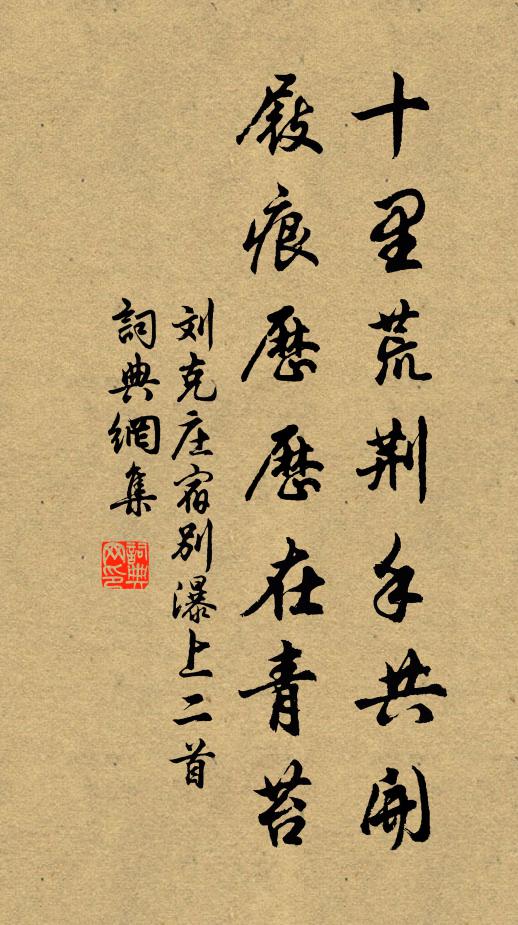 十里荒荆手共開
屐痕歷歷在青苔
刘克庄宿别瀑上二首
詞典網集
詞典
网印